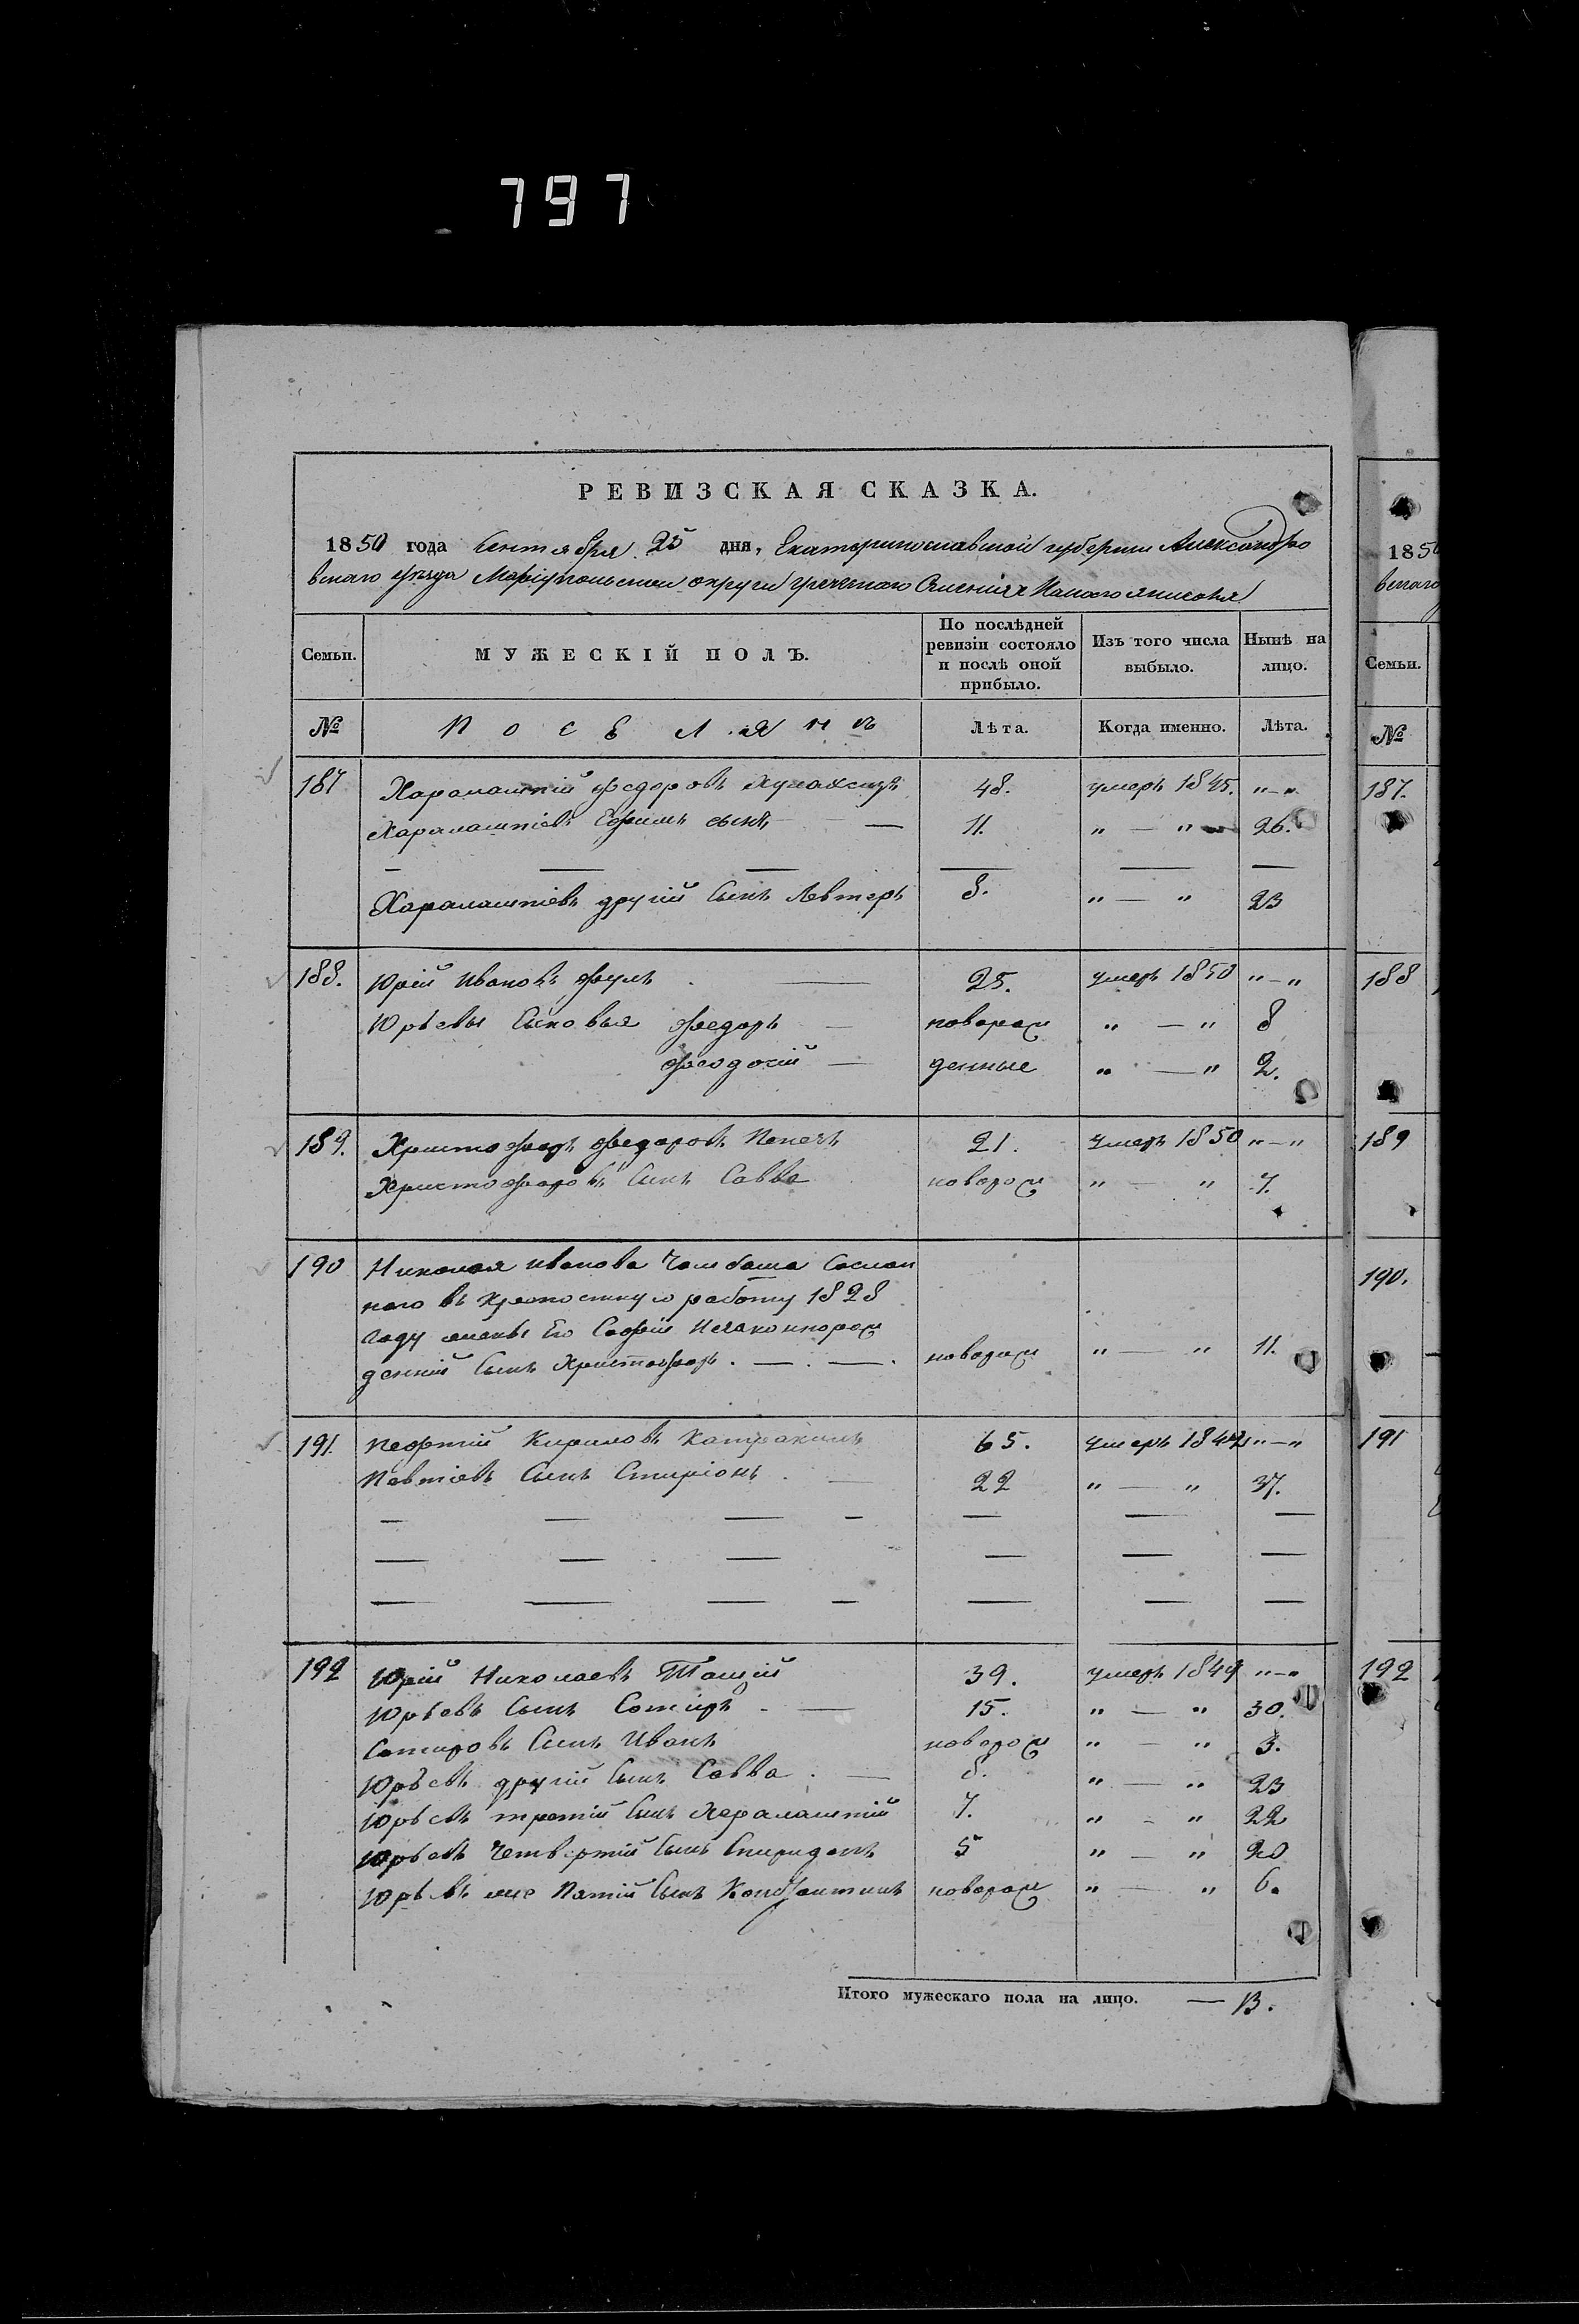 797
РЕВИЗСКАЯ СКАЗКА.
1850 года Сентября 25 дня, Екатеринославской губернии Александро
вскаго уѣзда Маріупольскаго округа греческаго Селенія Малаго Янисоля
Семьи.
МУЖЕСКІЙ ПОЛЪ.
По послѣдней ревизіи состояло и послѣ оной прибыло.
Изъ того числа выбыло.
Нынѣ на лицо.
№ Поселянъ Лѣта. Когда именно. Лѣта.
187 Харалампій Федоровъ 48. умеръ 1845. „—„
Харалампіевъ Ефимъ сынъ — 11. „—„ 26.
Харалампіевъ другій Сынъ Левтеръ 8. „—„ 23
188. Юрій Ивановъ — 25. умеръ 1850 „—„
Юрьевы Сыновья Федоръ — новорож „—„ 8
Феодосій — денные „—„ 2.
189. Христофоръ Федоровъ Пенезъ 21. умеръ 1850 „—„
Христофоровъ Сынъ Савва новорож „—„ 7.
190 Николая Иванова Сослан
наго въ крепостную работу 1828
году жены Его Софіи Незаконнорож
денній Сынъ Христофоръ. —.—. новорож „—„ 11.
191. Кириловъ 65. умеръ 1847 „—„
Сынъ Спиріонъ 22 „—„ 37.
192 Юрій Николаевъ Тащій 39. умеръ 1849 „—„
Юрьевъ Сынъ Сотиръ — 15. „—„ 30.
Сотировъ Сынъ Иванъ новорож „—„ 3.
Юрьевъ другій Сынъ Савва. — 8. „—„ 23
Юрьевъ третій Сынъ Харалампій 7. „—„ 22
Юрьевъ Четвертій Сынъ Спиридонъ 5 „—„ 20
Юрьевъ же Пятій Сынъ Константинъ новорож „—„ 6.
Итого мужескаго пола на лицо. — 13.
185
вскаго
Семьи.
№
187.
188
189
190.
191
192